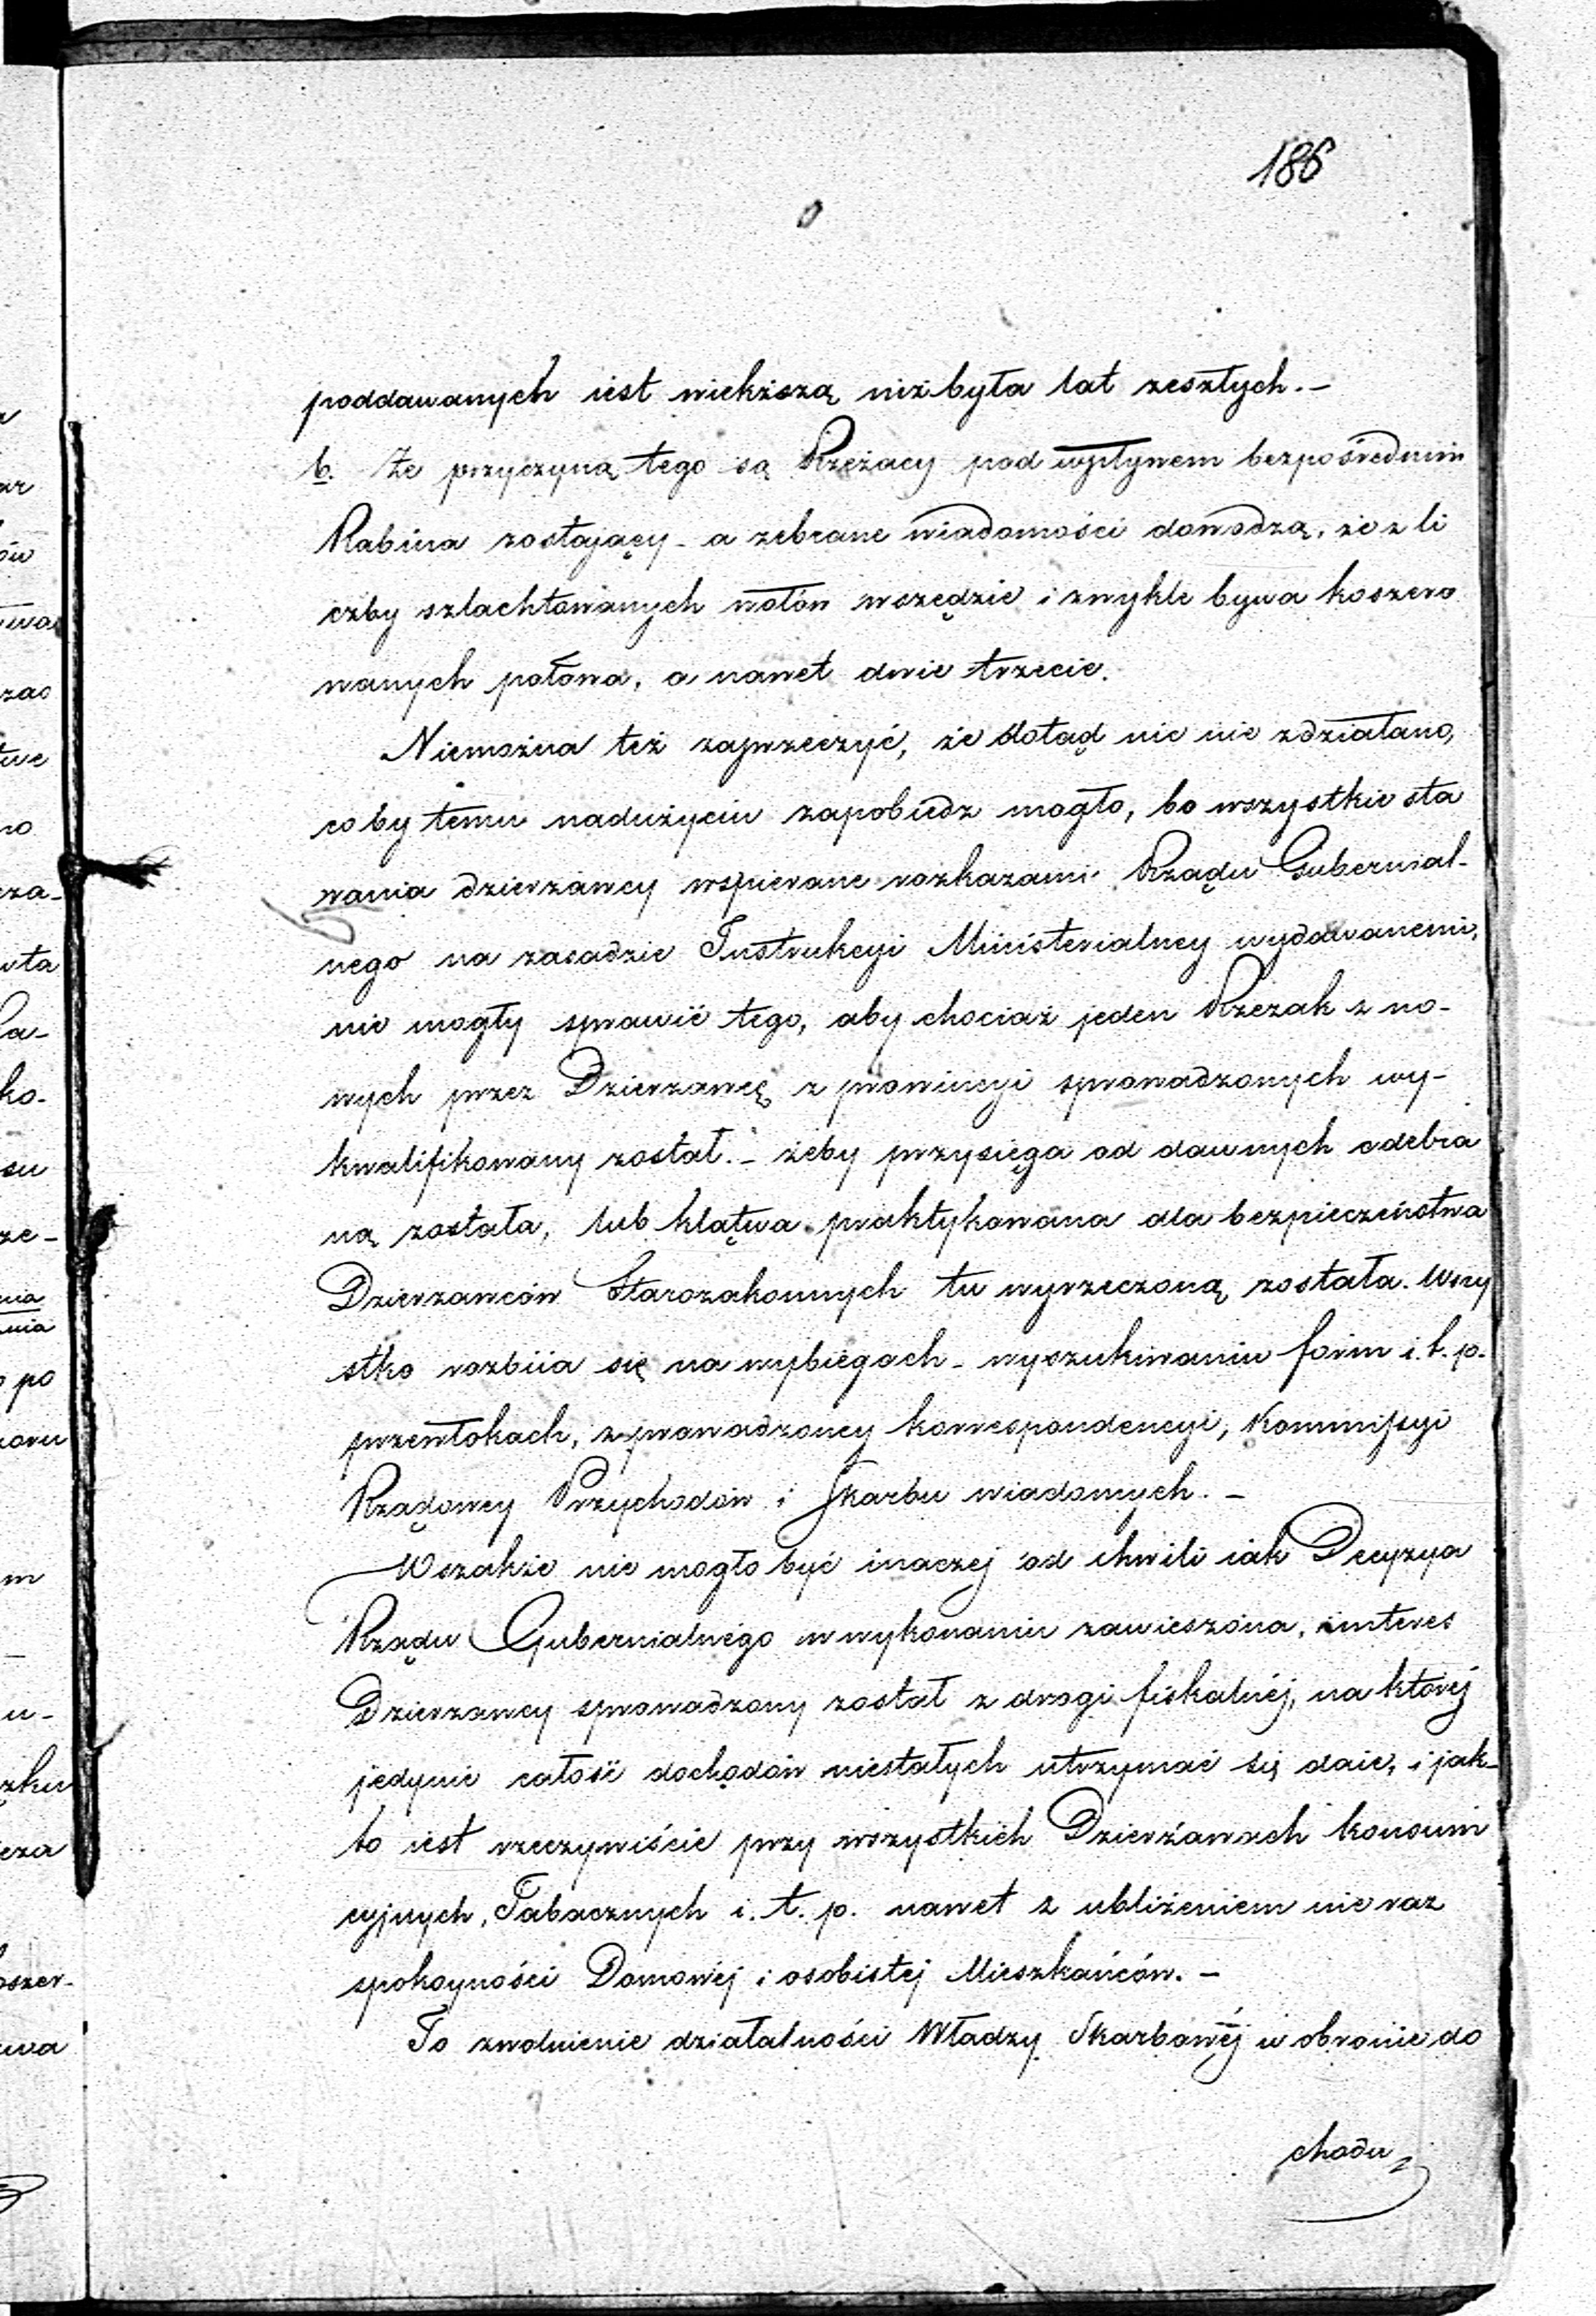 186
poddawanych iest wiekszą niż była lat zeszłych. -
b. Że przyczyną tego są Rzeżacy pod wpływem bezpośrednim
Rabina zostający - a zebrane wiadomości dowodzą, że z li
czby szlachtowanych wołów wszędzie i zwykle bywa koszero
wanych połowa, a nawet dwie trzecie.
Niemożna też zaprzeczyć, że dotąd nic nie zdziałano,
coby temu nadużyciu zapobiedz mogło, bo wszystkie sta
rania dzierzawcy wspierane rozkazami Rządu Gubernial-
nego na zasadzie Instrukcyi Ministerialney wydawanemi,
nie mogły sprawić tego, aby chociaż jeden Rzezak z no-
wych przez Dzierzawcę z prowincyi sprowadzonych wy-
kwalifikowany został. - żeby przysięga od dawnych odebra
ną została, lub klątwa praktykowana dla bezpieczeństwa
Dzierzawców Starozakonnych tu wyrzeczoną została. Wszy
stko rozbiia się na wybiegach - wyszukiwaniu form i. t. p.
przewłokach, z prowadzoney korrespondencyi, Kommissyi
Rządowey Przychodów i Skarbu wiadomych. -
Wszakże nie mogło być inaczej od chwili iak Decyzya
Rządu Gubernialnego w wykonaniu zawieszona, interes
Dzierzawcy sprowadzony został z drogi fiskalnéj, na któréj
jedynie całość dochodów niestałych utrzymać się daie, i jak
to iest rzeczywiście przy wszystkich Dzierżawach konsum
cyjnych, Tabacznych i. t. p. nawet z ubliżeniem nie raz
spokoyności Domowéj i osobistéj Mieszkańców. -
To zwolnienie działalności Władzy Skarbowéj w obronie do
chodu